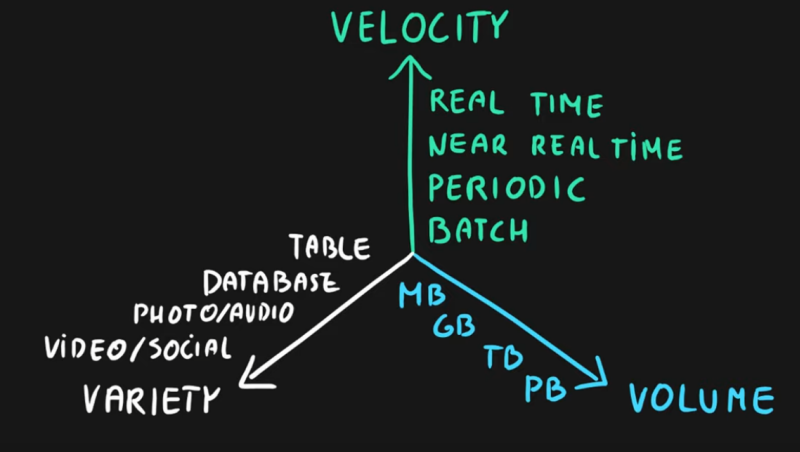 VELOCITY
REAL TIME
NEAR REAL TIME
PERIODIC
BATCH
TABLE
DATABASE
PHOTO/AUDIO
VIDEO/SOCIAL
VARIETY
MB
GB
TB
PB
VOLUME